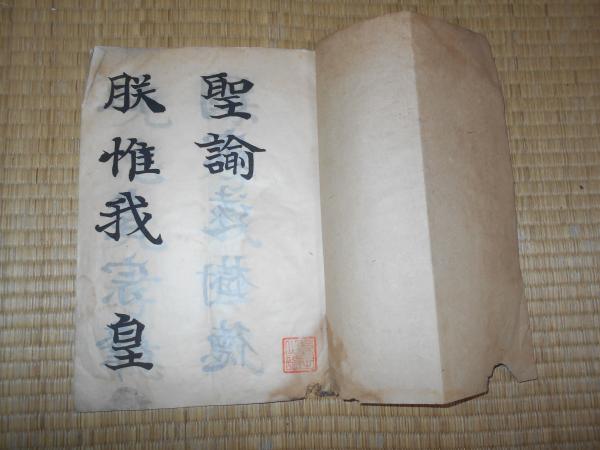 聖諭
朕惟我 皇